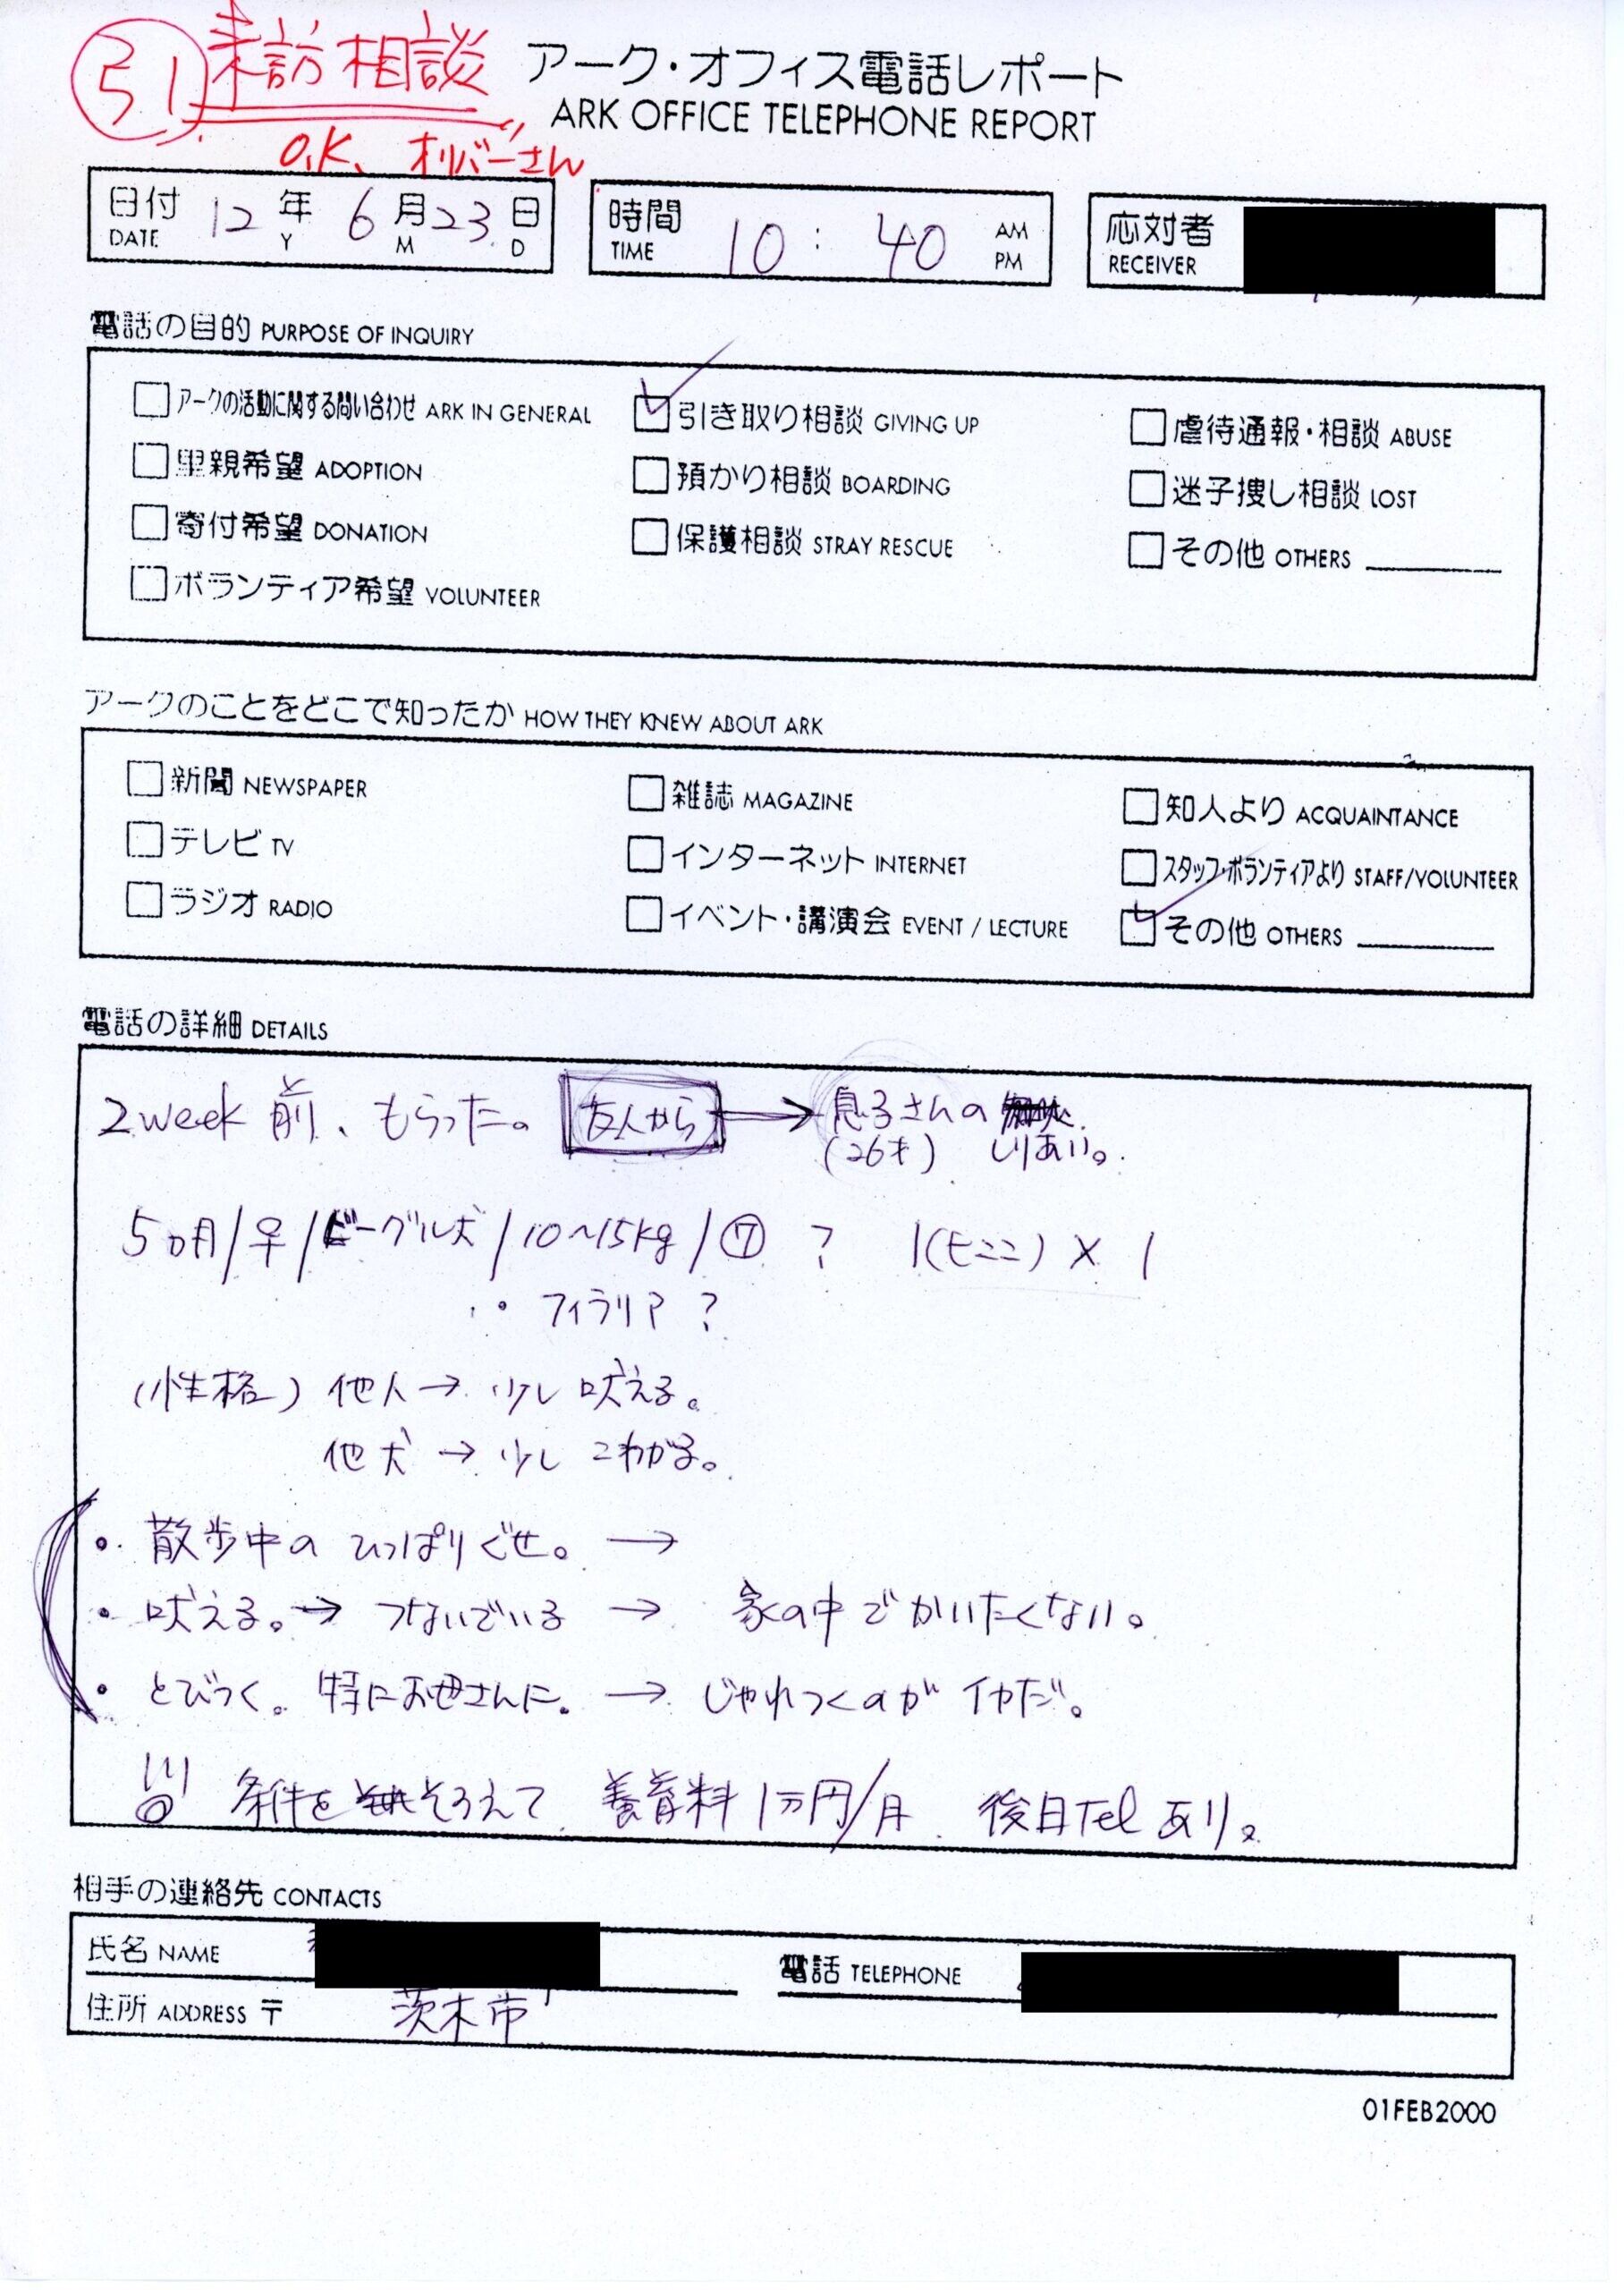 51 来訪相談
O.K、オリバーさん
アーク・オフィス電話レポート
ARK OFFICE TELEPHONE REPORT
日付 DATE 12 年 Y 6 月 M 23 日 D
時間 TIME 10 : 40 AM PM
応対者 RECEIVER
電話の目的 PURPOSE OF INQUIRY
アークの活動に関する問い合わせ ARK IN GENERAL
引き取り相談 GIVING UP
虐待通報・相談 ABUSE
里親希望 ADOPTION
預かり相談 BOARDING
迷子捜し相談 LOST
寄付希望 DONATION
保護相談 STRAY RESCUE
その他 OTHERS
ボランティア希望 VOLUNTEER
アークのことをどこで知ったか HOW THEY KNEW ABOUT ARK
新聞 NEWSPAPER
雑誌 MAGAZINE
知人より ACQUAINTANCE
テレビ TV
インターネット INTERNET
スタッフ・ボランティアより STAFF/VOLUNTEER
ラジオ RADIO
イベント・講演会 EVENT / LECTURE
その他 OTHERS
電話の詳細 DETAILS
2week前、もらった。 友人から → 息子さんの
(26才) しりあい。
5ヵ月/♀/ビーグル犬/10~15kg/⑦ ? 1(モニニ) × 1
・フィラリア ?
(性格) 他人→少し吠える。
他犬→少しこわがる。
・散歩中のひっぱりぐせ。→
・吠える。→つないでいる → 家の中でかいたくない。
・とびつく。特にお母さんに。→ じゃれつくのがイヤだ。
◎ 条件をそろえて 養育料1万円/月 後日Telあり。
相手の連絡先 CONTACTS
氏名 NAME
電話 TELEPHONE
住所 ADDRESS 〒 茨木市
01FEB2000